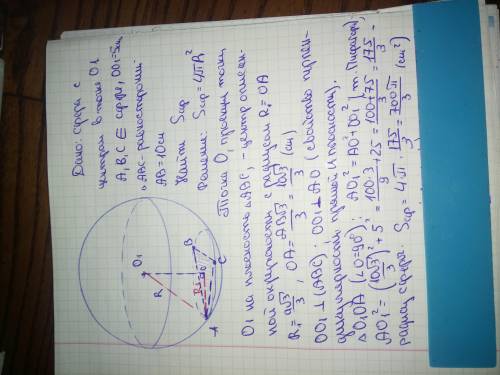 Дано: сфера с
центром в точке O1
A, B, C ∈ сфере, OO1=5см
△ABC - равносторонний
AB = 10 см
Найти Sсф
Решение: Sсф = 4πR²
O1
R
B
C
A
Точка O, проекция точки
O1 на плоскость △ABC, - центр описан-
ной окружности с радиусом R1 = OA
R1 = a√3/3, OA = AB√3/3 = 10√3/3 (см)
OO1 ⊥ (ABC). OO1 ⊥ AO (свойство перпен-
дикулярности прямой и плоскости).
△O1OA (∠O=90°): AO1² = AO² + OO1² (т. Пифагора),
AO1² = (10√3/3)² + 5² = 100·3/9 + 25 = 100+75/3 = 175/3 -
радиус сферы. Sсф = 4π · 175/3 = 700π/3 (см²)